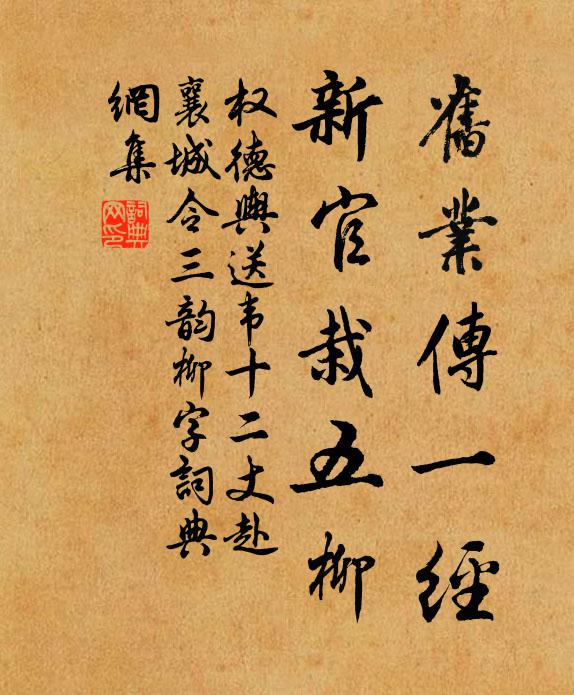 舊業傳一經
新官栽五柳
权德輿送韦十二丈赴
襄城令三韵柳字詞典
網集
詞典網印